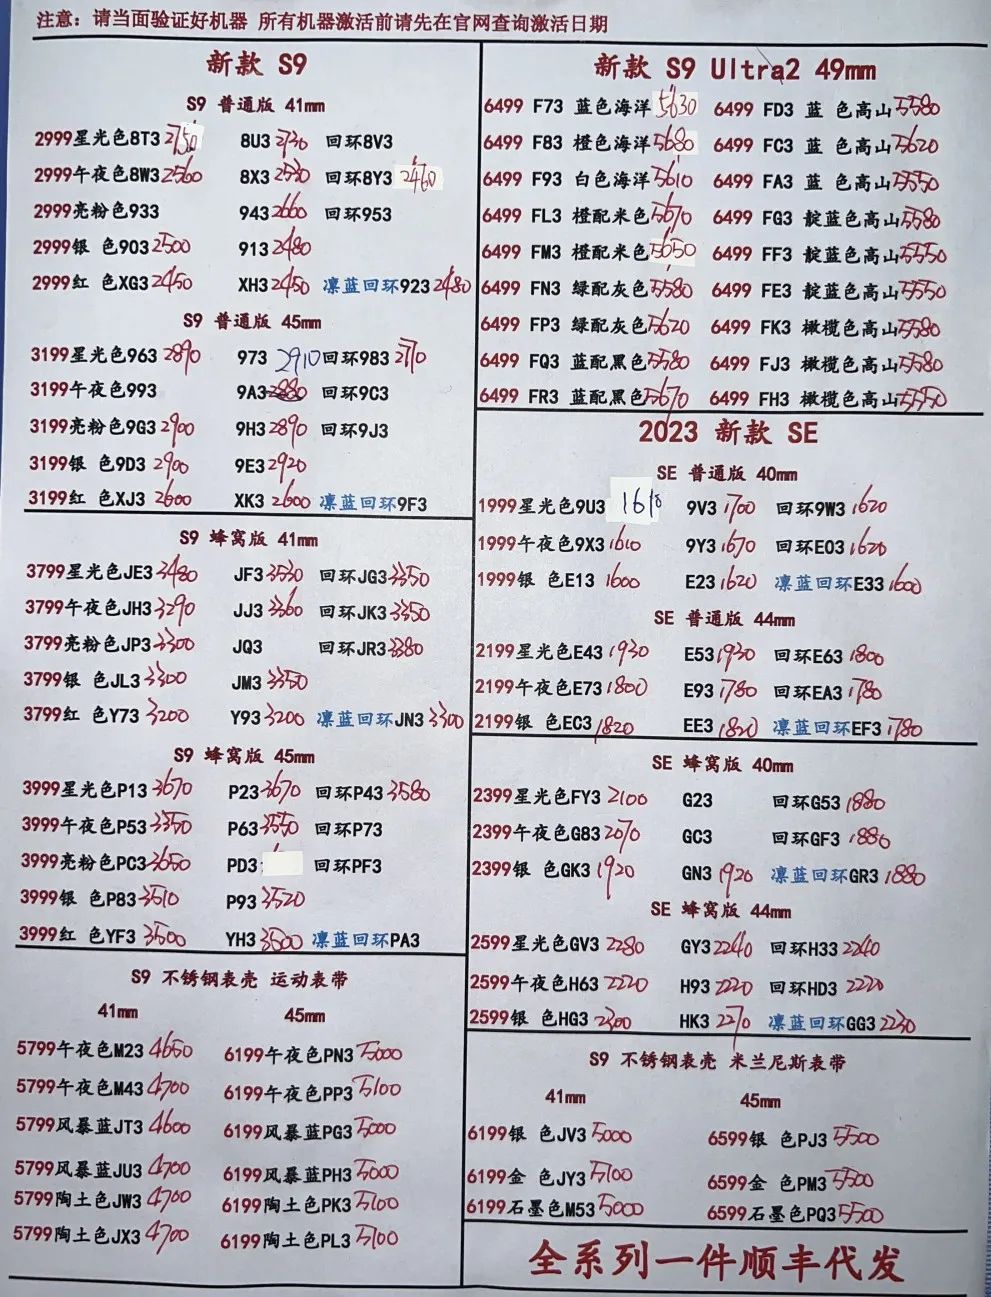 注意：请当面验证好机器 所有机器激活前请先在官网查询激活日期
新款 S9
S9 普通版 41mm
2999星光色8T3 2750 8U3 2730 回环8V3
2999午夜色8W3 2560 8X3 2530 回环8Y3 2460
2999亮粉色933 943 2660 回环953
2999银 色903 2500 913 2480
2999红 色XG3 2450 XH3 2450 凛蓝回环923 2480
S9 普通版 45mm
3199星光色963 2890 973 2910 回环983 2770
3199午夜色993 9A3 2880 回环9C3
3199亮粉色9G3 2900 9H3 2890 回环9J3
3199银 色9D3 2900 9E3 2920
3199红 色XJ3 2600 XK3 2600 凛蓝回环9F3
S9 蜂窝版 41mm
3799星光色JE3 3480 JF3 3530 回环JG3 3350
3799午夜色JH3 3290 JJ3 3360 回环JK3 3350
3799亮粉色JP3 3300 JQ3 回环JR3 3380
3799银 色JL3 3300 JM3 3350
3799红 色Y73 3200 Y93 3200 凛蓝回环JN3 3300
S9 蜂窝版 45mm
3999星光色P13 3670 P23 3670 回环P43 3580
3999午夜色P53 3550 P63 3550 回环P73
3999亮粉色PC3 3650 PD3 回环PF3
3999银 色P83 3510 P93 3520
3999红 色YF3 3500 YH3 3500 凛蓝回环PA3
S9 不锈钢表壳 运动表带
41mm 45mm
5799午夜色M23 4650 6199午夜色PN3 5000
5799午夜色M43 4700 6199午夜色PP3 5100
5799风暴蓝JT3 4600 6199风暴蓝PG3 5000
5799风暴蓝JU3 4700 6199风暴蓝PH3 5000
5799陶土色JW3 4700 6199陶土色PK3 5100
5799陶土色JX3 4700 6199陶土色PL3 5100
新款 S9 Ultra2 49mm
6499 F73 蓝色海洋 5630 6499 FD3 蓝 色高山 5580
6499 F83 橙色海洋 5680 6499 FC3 蓝 色高山 5620
6499 F93 白色海洋 5610 6499 FA3 蓝 色高山 5550
6499 FL3 橙配米色 5670 6499 FG3 靛蓝色高山 5580
6499 FM3 橙配米色 5650 6499 FF3 靛蓝色高山 5550
6499 FN3 绿配灰色 5580 6499 FE3 靛蓝色高山 5550
6499 FP3 绿配灰色 5620 6499 FK3 橄榄色高山 5580
6499 FQ3 蓝配黑色 5580 6499 FJ3 橄榄色高山 5580
6499 FR3 蓝配黑色 5670 6499 FH3 橄榄色高山 5550
2023 新款 SE
SE 普通版 40mm
1999星光色9U3 1610 9V3 1700 回环9W3 1620
1999午夜色9X3 1610 9Y3 1670 回环E03 1620
1999银 色E13 1600 E23 1620 凛蓝回环E33 1600
SE 普通版 44mm
2199星光色E43 1930 E53 1930 回环E63 1800
2199午夜色E73 1800 E93 1780 回环EA3 1780
2199银 色EC3 1820 EE3 1820 凛蓝回环EF3 1780
SE 蜂窝版 40mm
2399星光色FY3 2100 G23 回环G53 1880
2399午夜色G83 2070 GC3 回环GF3 1880
2399银 色GK3 1920 GN3 1920 凛蓝回环GR3 1880
SE 蜂窝版 44mm
2599星光色GV3 2280 GY3 2240 回环H33 2240
2599午夜色H63 2220 H93 2220 回环HD3 2220
2599银 色HG3 2300 HK3 2270 凛蓝回环GG3 2230
S9 不锈钢表壳 米兰尼斯表带
41mm 45mm
6199银 色JV3 5000 6599银 色PJ3 5500
6199金 色JY3 5100 6599金 色PM3 5500
6199石墨色M53 5000 6599石墨色PQ3 5500
全系列一件顺丰代发